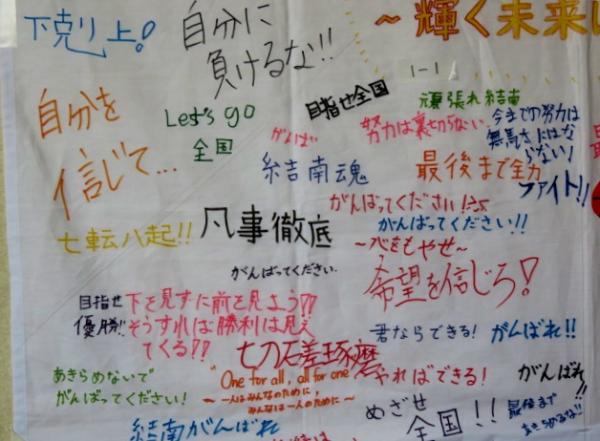 下剋上!
自分に
負けるな!!
~輝く未来
1-1
自分を
信じて...
Let's go
全国
目指せ全国
がんば
努力は裏切らない
頑張れ結南
今までの努力は
無馬さにはな
らない!
結南魂
最後まで全力
ファイト!!
がんばってください!
がんばってください!!
七転八起!!
凡事徹底
~心をもやせ~
希望を信じろ!
がんばってください.
目指せ
優勝!!
下を見ずに前を見よう!!
そうすれば勝利は見え
てくる!!
君ならできる!
がんばれ!!
切磋琢磨
"One for all, all for one"
~一人はみんなのために,
みんなは一人のために~
やればできる!
がんばれ!!
あきらめないで
がんばってください!
めざせ
全国!!
最後まで
あきらめるな!!
結南がんばれ